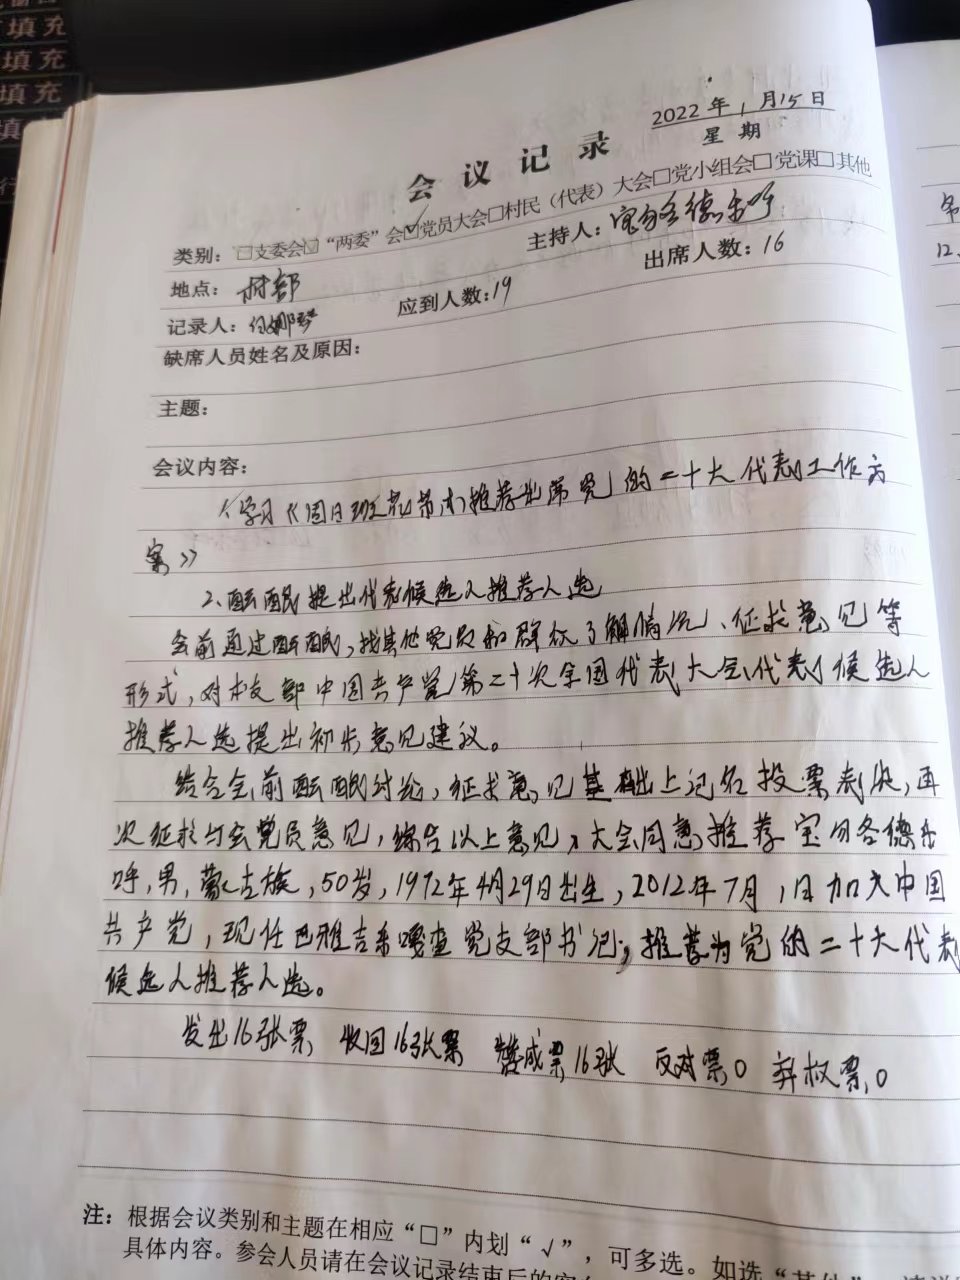 填充
填充
填充
填
2022年1月15日
星期
会议记录
类别：□支委会□“两委”会☑党员大会□村民（代表）大会□党小组会□党课□其他
地点：村部 主持人：宝音各德勒呼
记录人：白娜琴 应到人数：19 出席人数：16
缺席人员姓名及原因：
主题：
会议内容：
1、学习《 推荐出席党的二十大代表工作方
案》
2、酝酿提出代表候选人推荐人选
会前通过酝酿，找其他党员和群众了解情况、征求意见等
形式，对本支部中国共产党第二十次全国代表大会代表候选人
推荐人选提出初步意见建议。
结合会前酝酿讨论，征求意见基础上记名投票表决，再
次征求与会党员意见，综合以上意见，大会同意推荐宝 各德
呼，男，蒙古族，50岁，1972年4月29日出生，2012年7月1日加入中国
共产党，现任巴雅吉 嘎查党支部书记，推荐为党的二十大代表
候选人推荐人选。
发出16张票 收回16张票 赞成票16张 反对票0 弃权票0
注：根据会议类别和主题在相应“□”内划“√”，可多选。如选“其他”
具体内容。参会人员请在会议记录结束后的空
12、